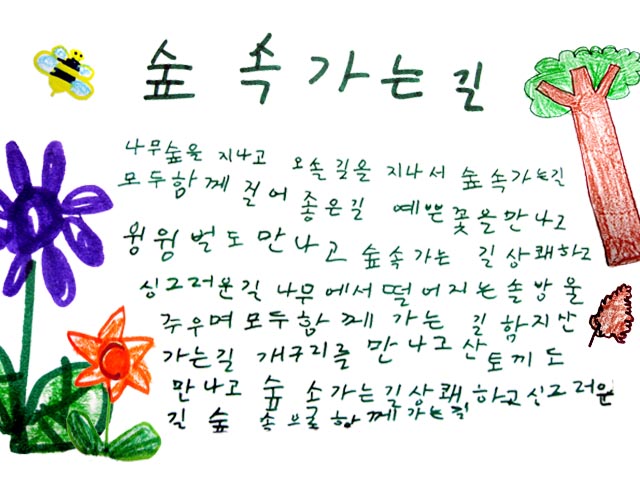 숲 속 가는 길
나무숲을 지나고 오솔길을 지나서 숲속가는길
모두함께 걸어 좋은길 예쁜꽃을만나고
윙윙벌도만나고 숲속가는 길상쾌하고
싱그러운길 나무에서떨어지는솔방울
주우며모두함께 가는 길 함지산
가는길 개구리를 만나고산토끼도
만나고 숲 소가는길상쾌하고싱그러운
길 숲 속으로함께가는길